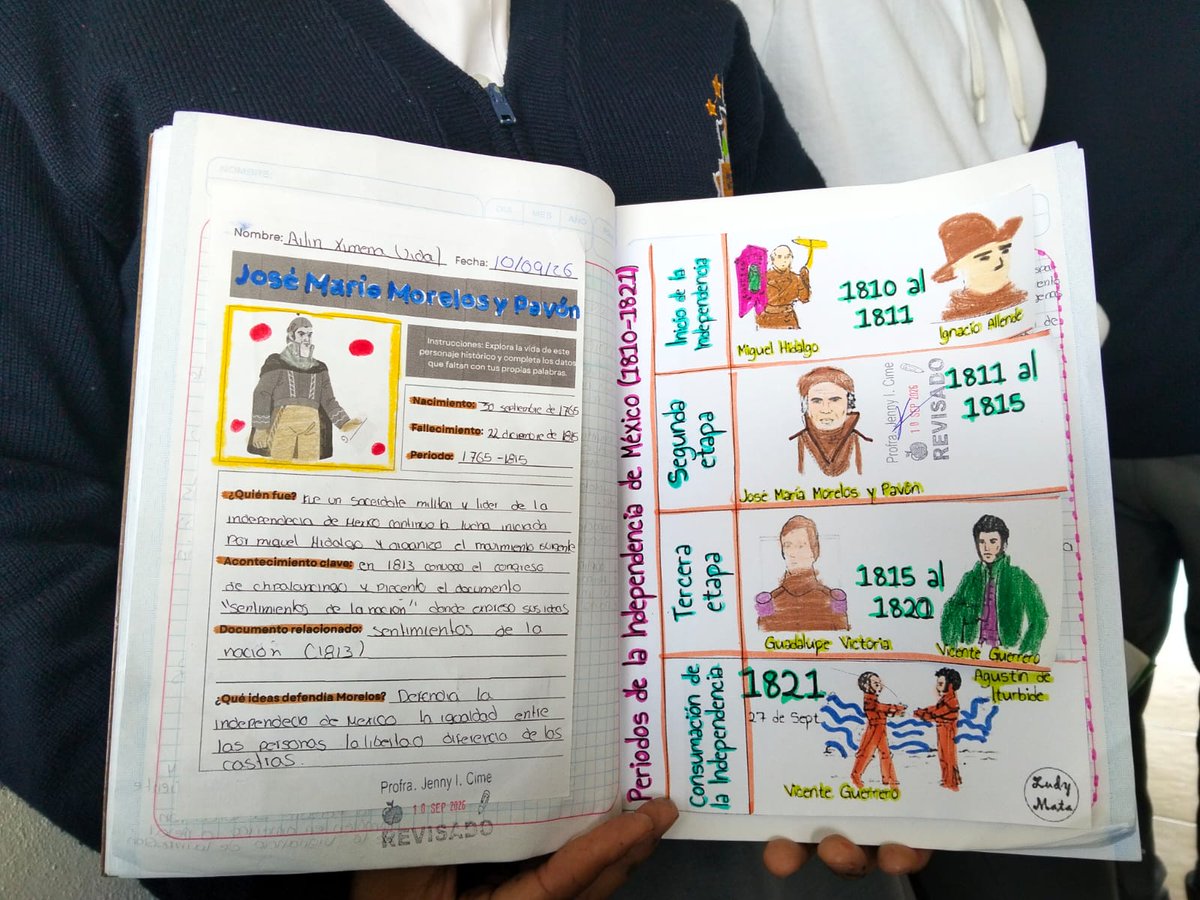 NOMBRE
DIA MES AÑO
Nombre: Ailin Ximena Uvidal Fecha: 10/09/26
José Maria Morelos y Pavón
Instrucciones: Explora la vida de este
personaje histórico y completa los datos
que faltan con tus propias palabras.
Nacimiento: 30 septiembre de 1765
Fallecimiento: 22 diciembre de 1815
Periodo: 1765-1815
¿Quién fue? fue un sacerdote militar y lider de la
independecia de Mexico continuo la lucha iniciada
por miguel Hidalgo y organizo el movimiento
Acontecimiento clave: en 1813 convoco el congreso
de y el documento
"sentimientos de la nación" donde expreso sus idas
Documento relacionado: sentimientos de la
nación (1813)
¿Qué ideas defendía Morelos? Defendia la
independecia de Mexico la igualdad entre
las personas la libertad diferencia de las
castias.
Profra. Jenny I. Cime
10 SEP 2026
REVISADO
Periodos de la Independencia de México (1810-1821)
Inicio de la
Independencia
Miguel Hidalgo
1810 al
1811
Ignacio Allende
Segunda
etapa
José María Morelos y Pavón
Profra. Jenny I. Cime
10 SEP 2026
REVISADO
1811 al
1815
Tercera
etapa
Guadalupe Victoria
1815 al
1820
Vicente Guerrero
Consumación de
la Independencia
1821
27 de Sept.
Vicente Guerrero
Agustín de
Iturbide
Ludy
Mata